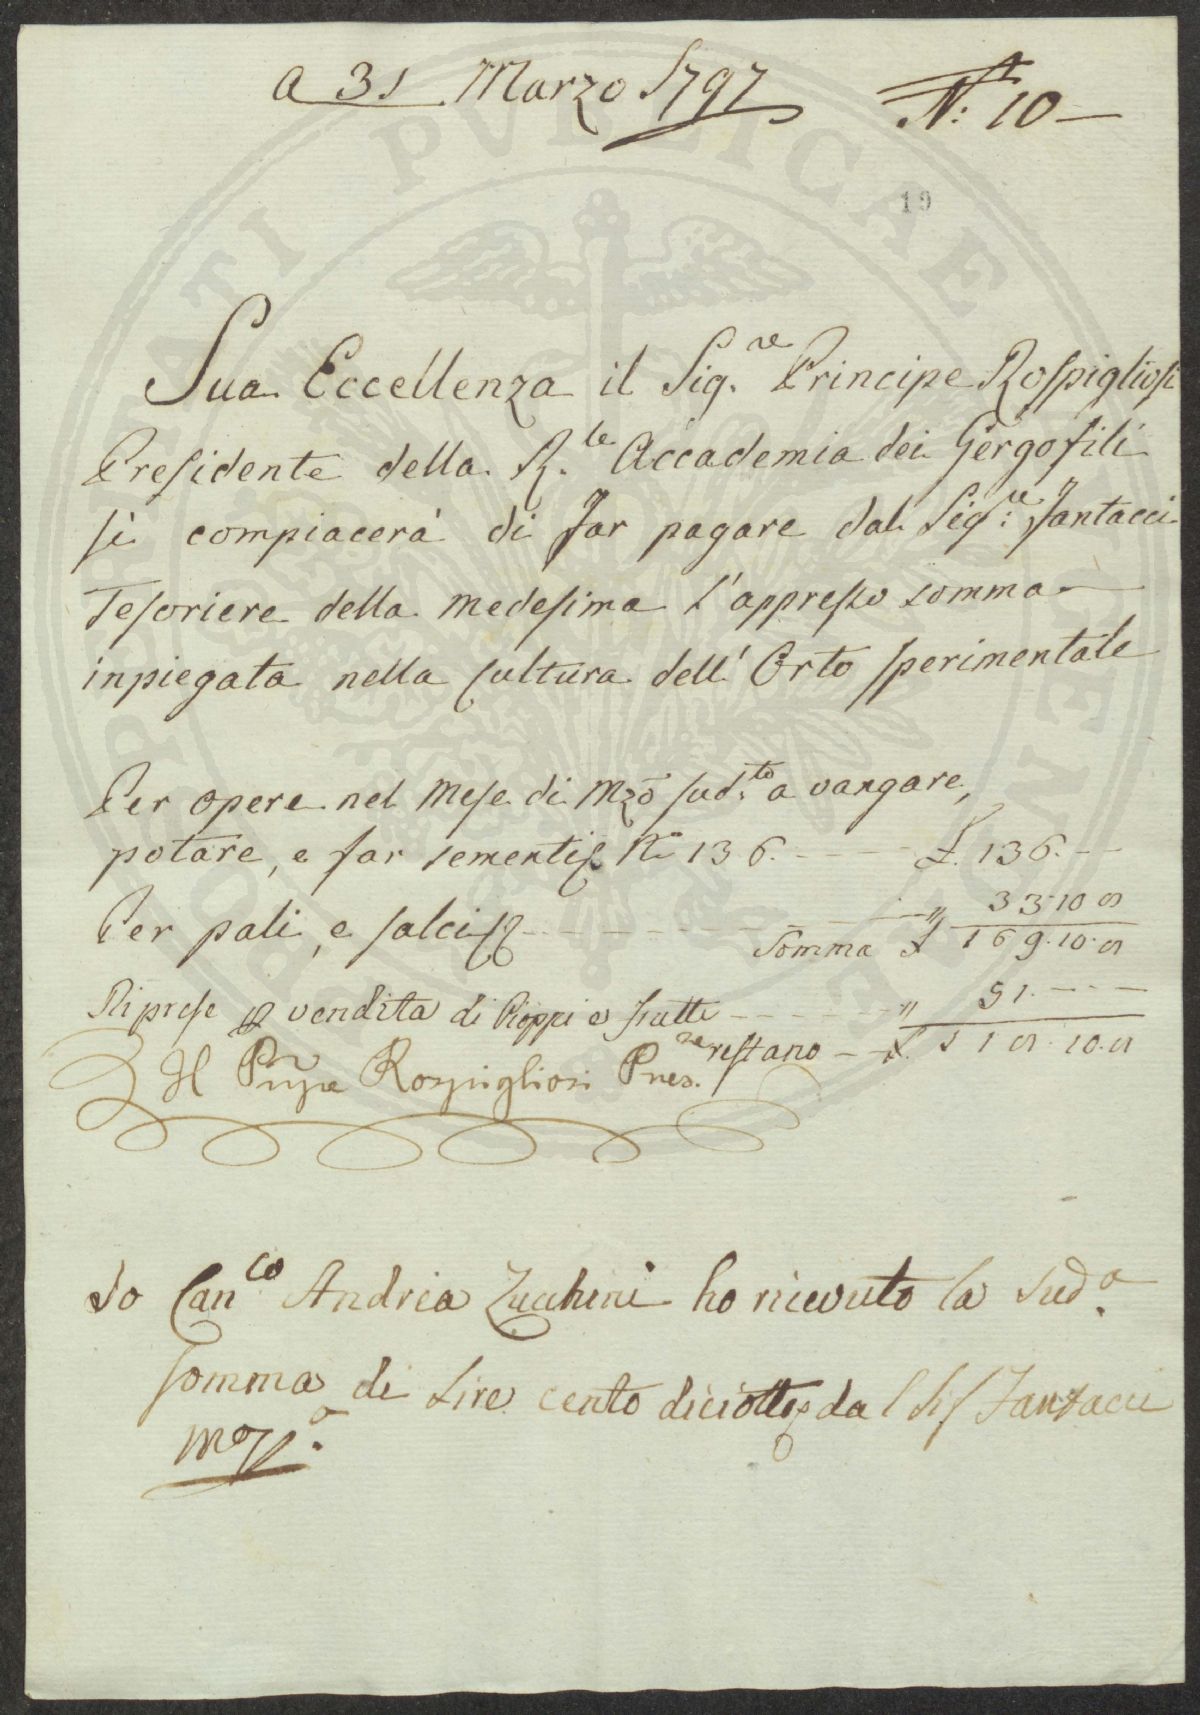 a 31 Marzo 1797
N.° 10
19
Sua Eccellenza il Sig.re Principe Rospigliosi
Presidente della R.le Accademia dei Gergofili
si compiacerà di far pagare dal Sig.re Fantacci
Tesoriere della medesima l'appresso somma
inpiegata nella cultura dell'Orto sperimentale
Per opere nel Mese di Mzō sud.to a vangare,
potare, e far sementi N.° 136. £. 136.
Per pali, e salci 33.10
Somma £ 169.10
Riprese vendita di Pioppi e frutte " 51.
restano £. 118.10
Il Pñpe Rospigliosi Pres.
Io Can.co Andrea Zucchini ho ricevuto la sud.a
somma di Lire cento diciotto dal Sig Fantacci
PVBLICAE